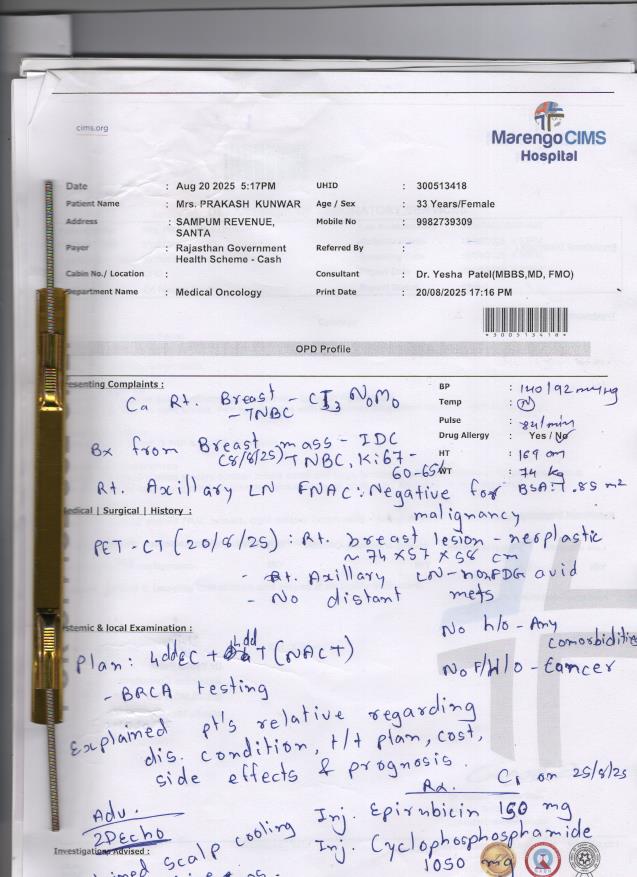 cims.org
Marengo CIMS
Hospital
Date : Aug 20 2025 5:17PM UHID : 300513418
Patient Name : Mrs. PRAKASH KUNWAR Age / Sex : 33 Years/Female
Address : SAMPUM REVENUE, SANTA Mobile No : 9982739309
Payer : Rajasthan Government Health Scheme - Cash Referred By :
Cabin No./ Location : Consultant : Dr. Yesha Patel(MBBS,MD, FMO)
epartment Name : Medical Oncology Print Date : 20/08/2025 17:16 PM
*300513418*
OPD Profile
esenting Complaints :
BP : 140/92 mmHg
Temp : N
Pulse : 84/min
Drug Allergy : Yes / No
HT : 169 cm
WT : 74 kg
BSA: 1.85 m2
Ca Rt. Breast - cT3 N0 M0
- TNBC
Bx from Breast mass - IDC
(8/8/25) TNBC, Ki67 -
60-65%
Rt. Axillary LN FNAC: Negative for
malignancy
edical | Surgical | History :
PET-CT (20/8/25) : Rt. breast lesion - neoplastic
~ 74 x 57 x 58 cm
- Rt. Axillary LN - non FDG avid
- No distant mets
stemic & local Examination :
No h/o - Any
comorbidities
No F/H/O - Cancer
Plan: 4 ddEC + 4 dd T (NACT)
- BRCA testing
Explained pt's relative regarding
dis. condition, t/t plan, cost,
side effects & prognosis.
Rx. C1 on 25/8/25
Adv.
2D Echo
Inj. Epirubicin 150 mg
scalp cooling
Inj. Cyclophosphamide
1050 mg
Investigations Advised :